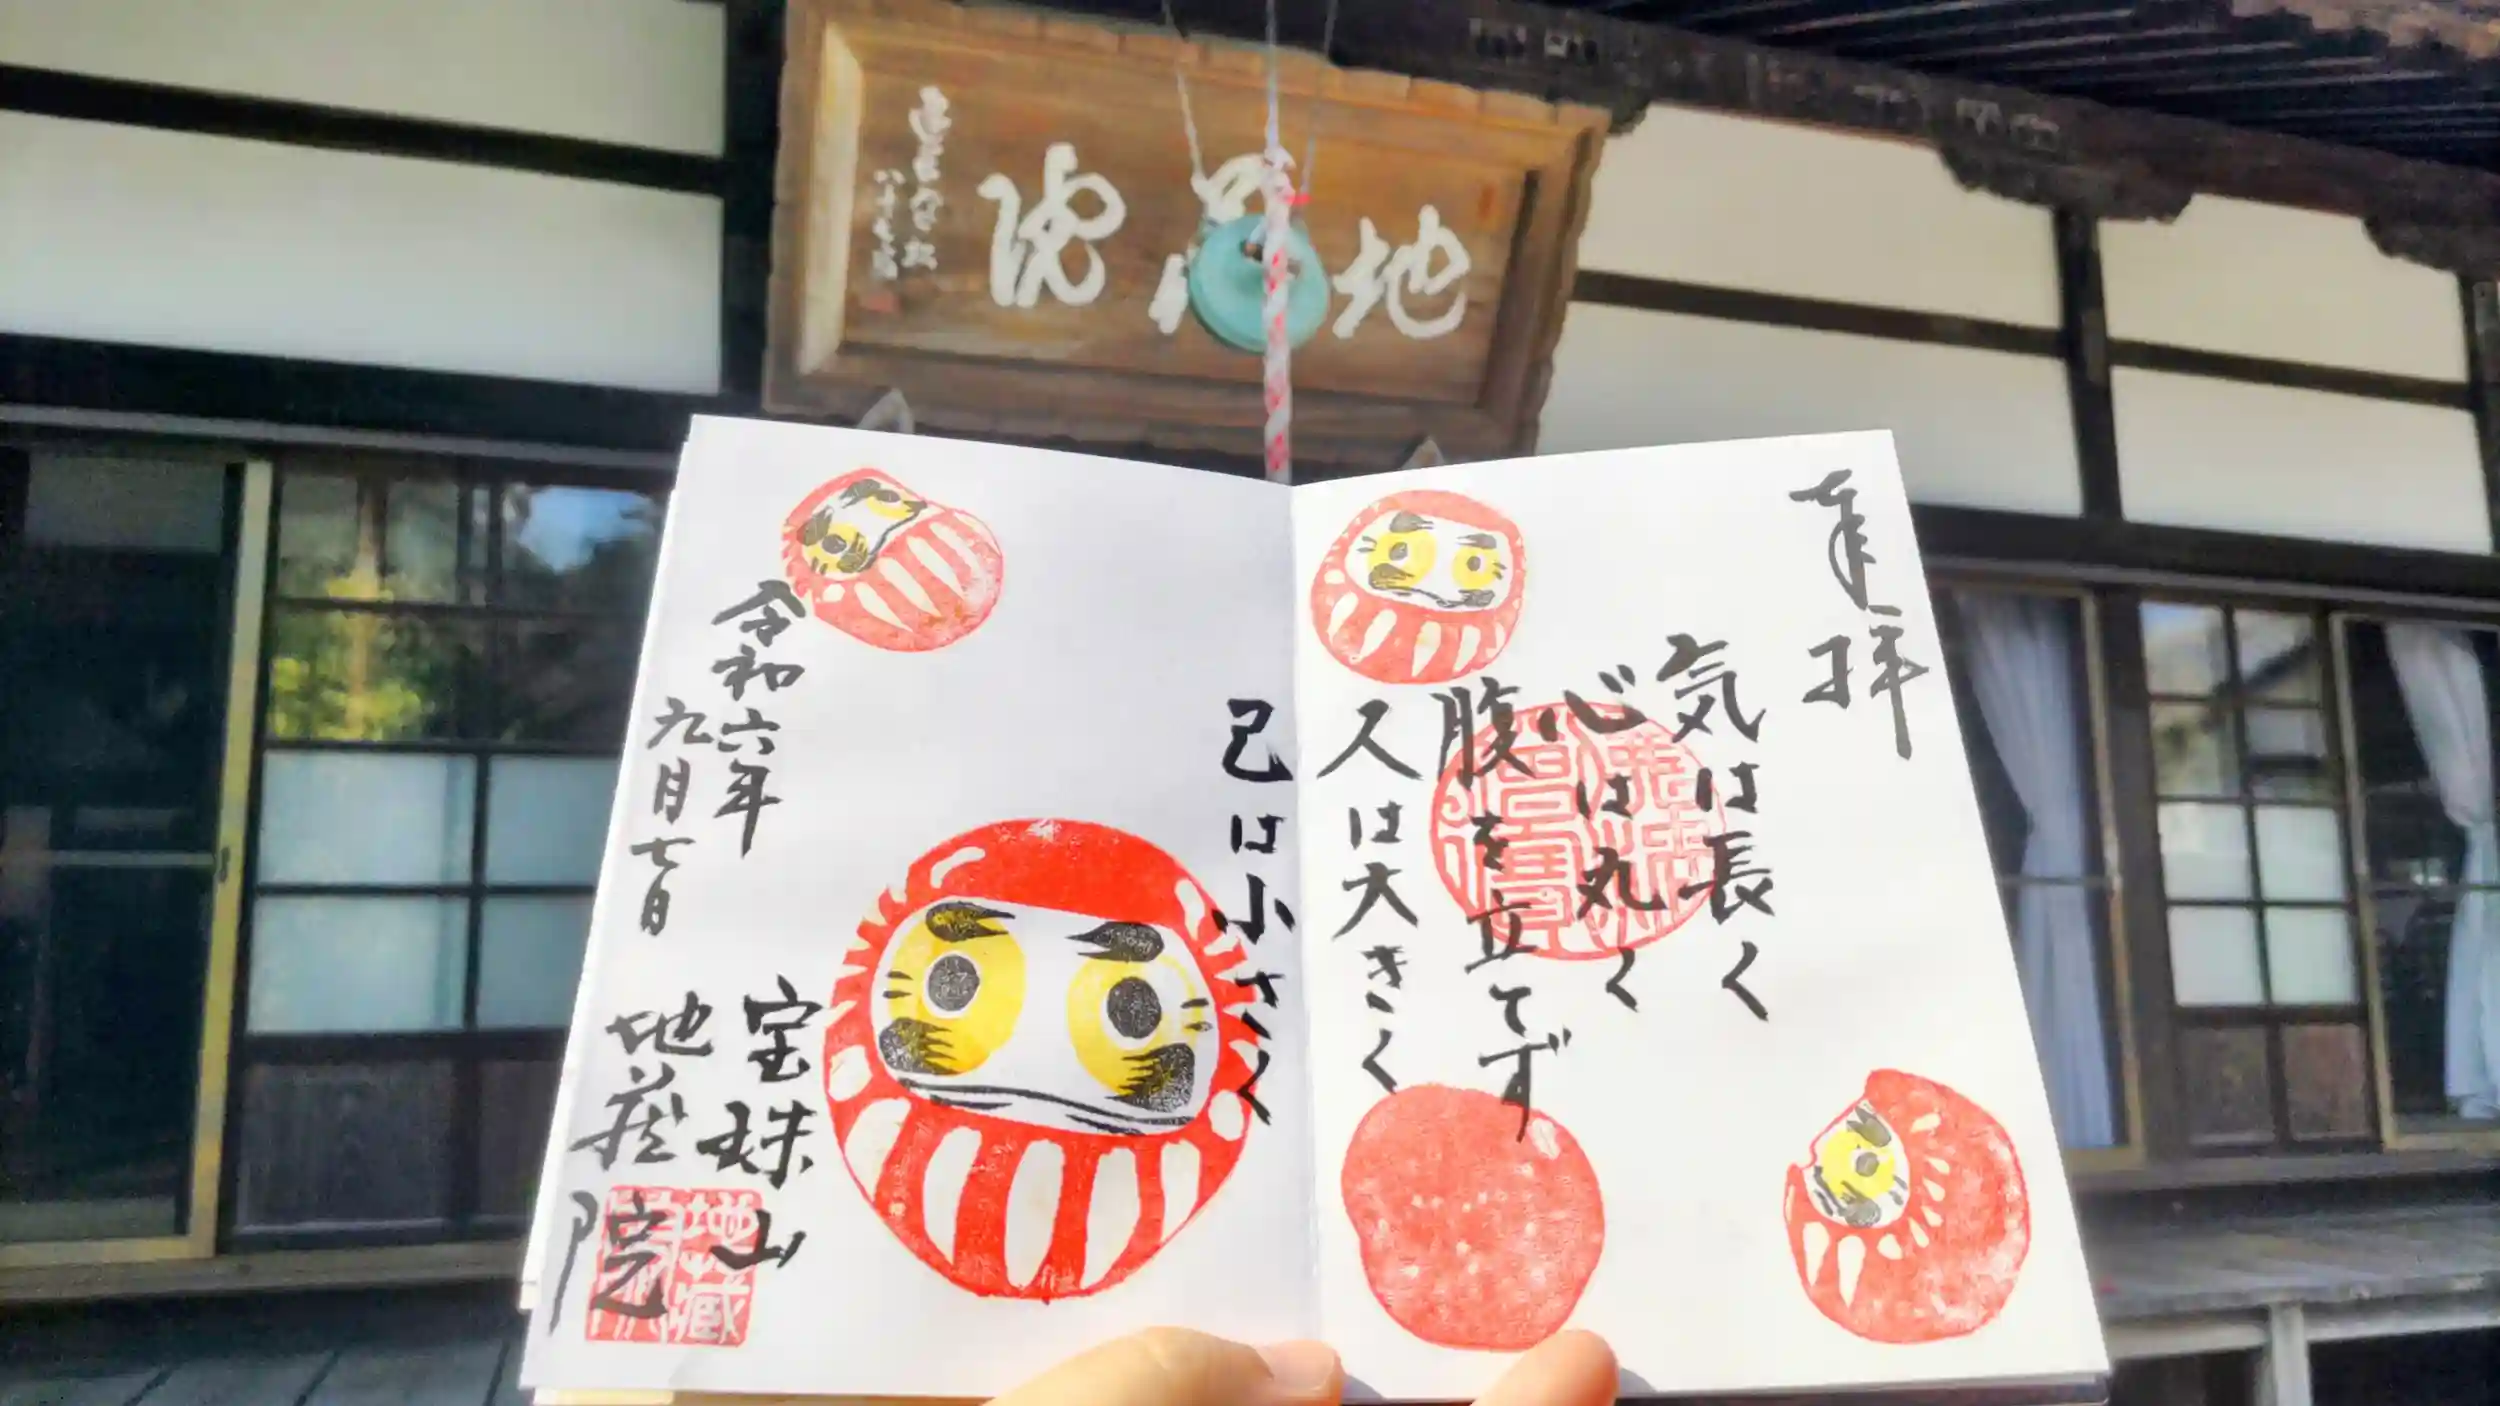 地蔵院
奉拝
気は長く
心は丸く
腹を立てず
人は大きく
己は小さく
令和六年
九月七日
宝珠山
地蔵院
地蔵